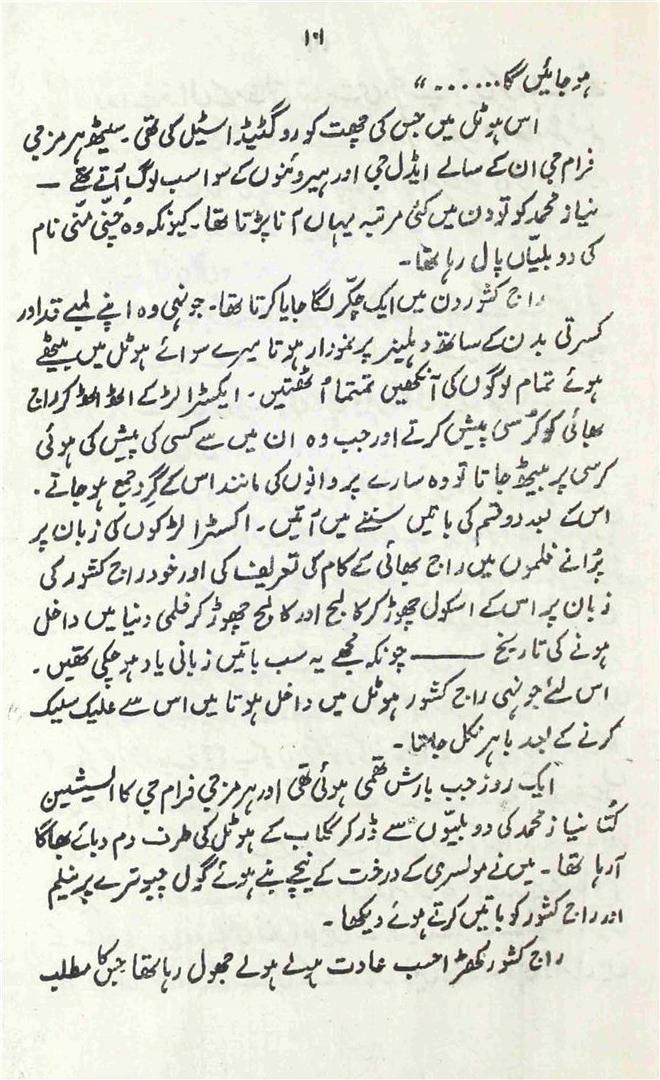 ۱۰۱
ہو جائیں گا......“
اس ہوٹل میں جس کی چھت کوروگٹیڈ اسٹیل کی تھی۔ سیٹھ ہرمزجی
فرام جی ان کے سالے ایڈل جی اور ہیروئنوں کے سوا سب لوگ آتے تھے —
نیاز محمد کو تو دن میں کئی مرتبہ یہاں آنا پڑتا تھا۔ کیونکہ وہ چنی منی نام
کی دو بلیاں پال رہا تھا۔
راج کشور دن میں ایک چکر لگا جایا کرتا تھا۔ جونہی وہ اپنے لمبے قد اور
کسرتی بدن کے ساتھ دہلیز پر نمودار ہوتا میرے سوائے ہوٹل میں بیٹھے
ہوئے تمام لوگوں کی آنکھیں تمتما اُٹھتیں۔ ایکسٹرا لڑکے اٹھ اٹھ کر راج
بھائی کو کرسی پیش کرتے اور جب وہ ان میں سے کسی کی پیش کی ہوئی
کرسی پر بیٹھ جاتا تو وہ سارے پروانوں کی مانند اس کے گِرد جمع ہو جاتے۔
اس کے بعد دو قسم کی باتیں سننے میں آتیں۔ اکسٹرا لڑکوں کی زبان پر
پُرانے فلموں میں راج بھائی کے کام کی تعریف کی اور خود راج کشور کی
زبان پر اس کے اسکول چھوڑ کر کالج اور کالج چھوڑ کر فلمی دنیا میں داخل
ہونے کی تاریخ ——— چونکہ مجھے یہ سب باتیں زبانی یاد ہو چکی تھیں۔
اس لئے جونہی راج کشور ہوٹل میں داخل ہوتا میں اس سے علیک سلیک
کرنے کے بعد باہر نکل جاتا۔
ایک روز جب بارش تھمی ہوئی تھی اور ہرمزجی فرام جی کا السیشین
کُتا نیاز محمد کی دو بلیوں سے ڈر کر گلاب کے ہوٹل کی طرف دم دبائے بھاگا
آ رہا تھا۔ میں نے مولسری کے درخت کے نیچے بنے ہوئے گول چبوترے پر نیلم
اور راج کشور کو باتیں کرتے ہوئے دیکھا۔
راج کشور کھڑا حسب عادت ہولے ہولے جھول رہا تھا جس کا مطلب